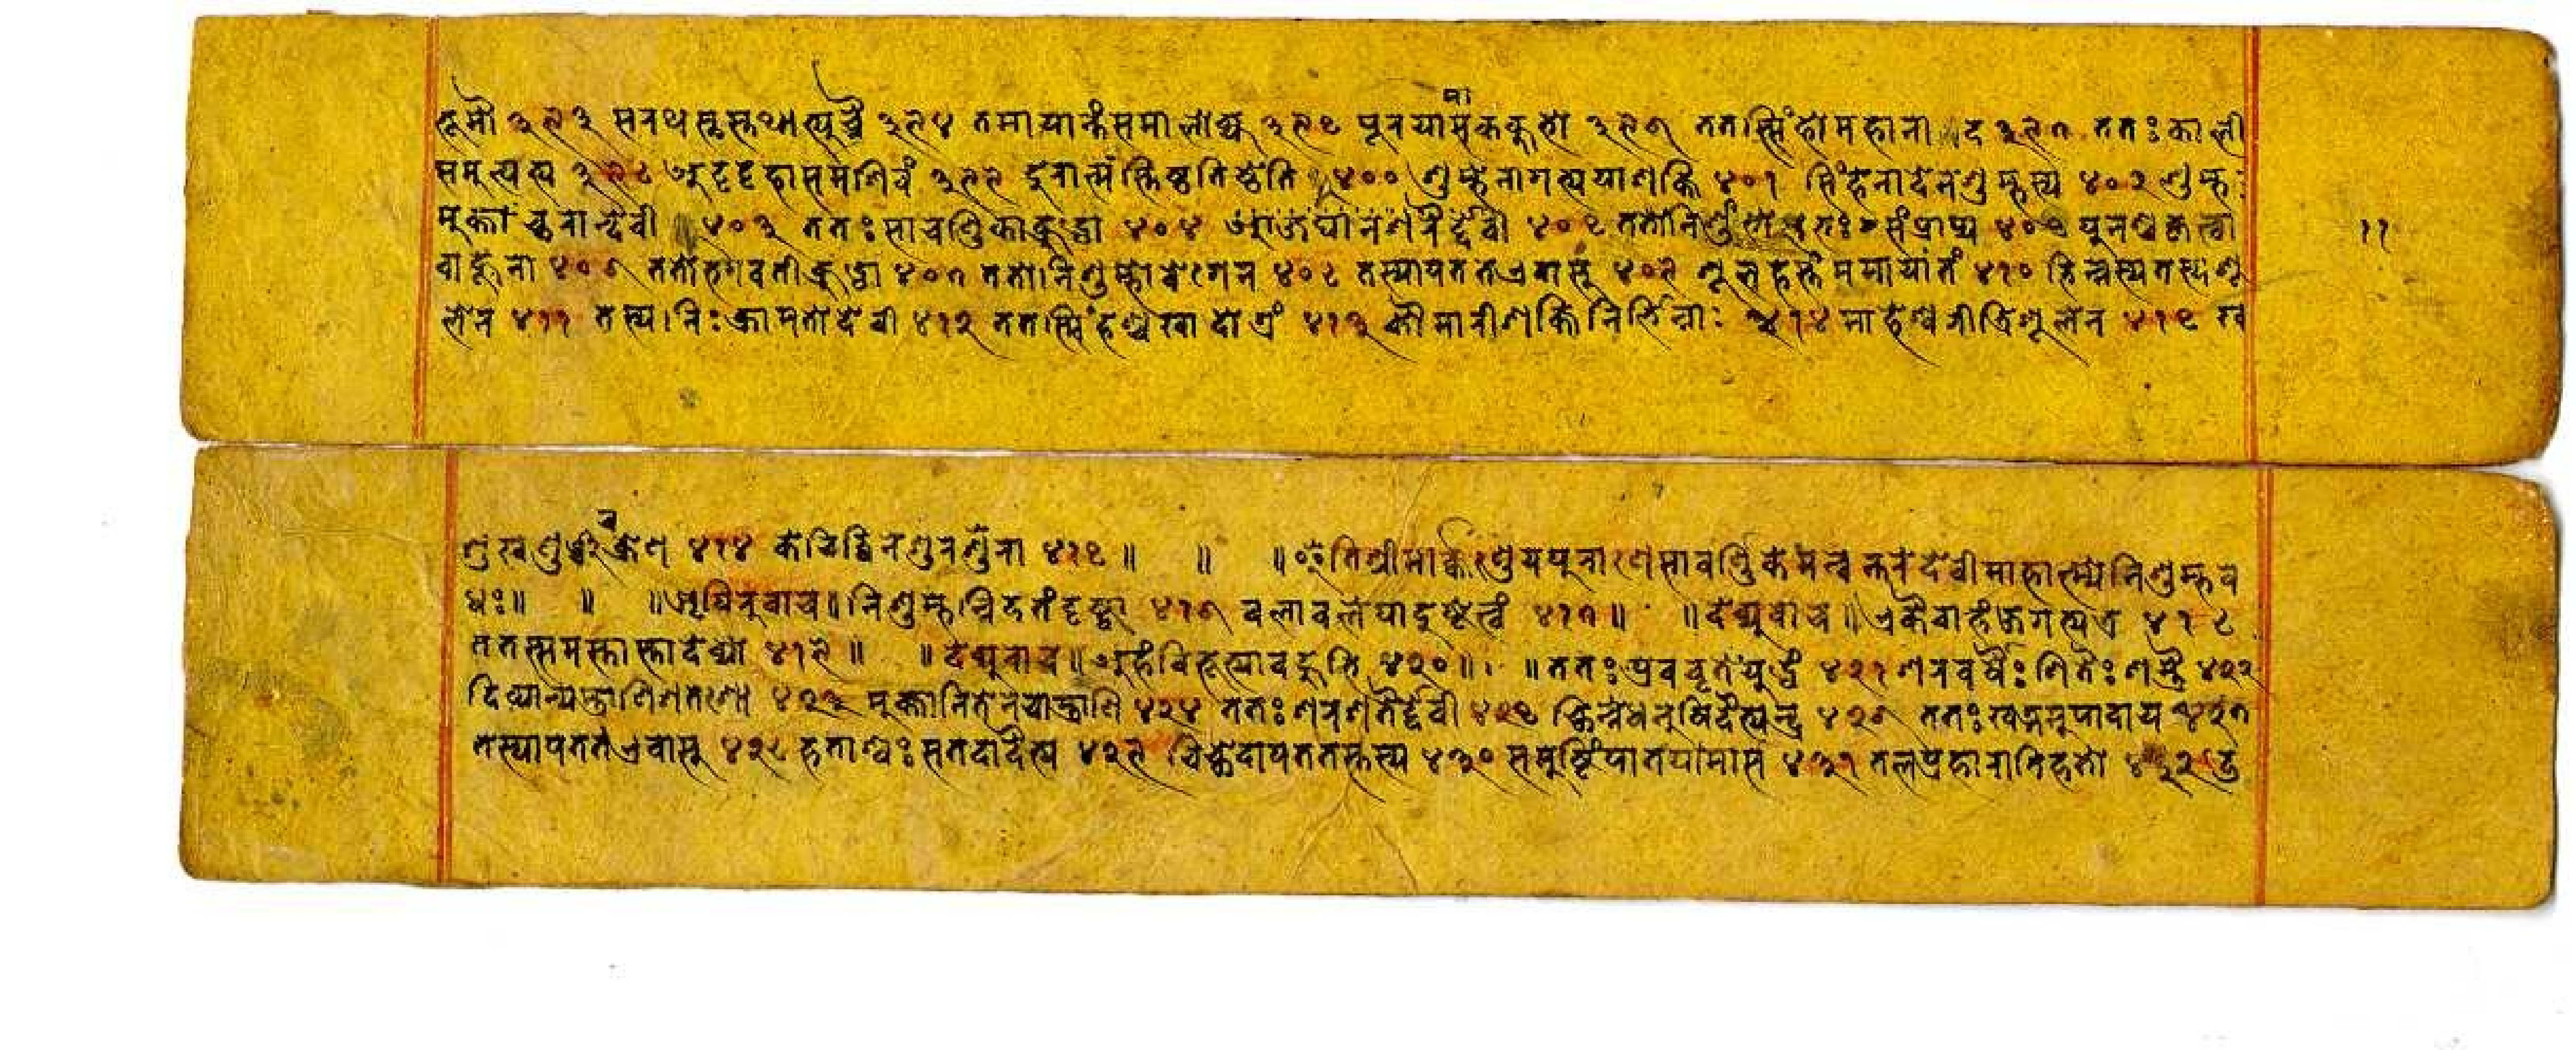 भूमौ ३९३ सरथस्थस्तथात्युच्चै ३९४ तमायान्तंसमालोक्य ३९५ पूरयामासककुभो ३९६ ततस्सिंहोमहाना द ३९७ ततःकाली
समुत्पत्य ३९८ अट्टट्टहासमशिवं ३९९ दुरात्मंस्तिष्ठतिष्ठेति ४०० शुम्भेनागत्ययाशक्ति ४०१ सिंहनादेनशुम्भस्य ४०२ शुम्भ
मुक्तांच्छरान्देवी ४०३ ततःसाचण्डिकाक्रुद्धा ४०४ आजघानशरैर्द्देवी ४०५ ततोनिशुंभः संप्राप्य ४०५ पुनश्चकृत्वा
बाहूना ४०६ ततोभगवतीक्रुद्धा ४०७ ततोनिशुम्भोवेगेन ४०८ तस्यापततएवासु ४०९ शूलहस्तंसमायांतं ४१० भिन्नस्यतस्यशू
लेन ४११ तस्यनिःक्रामतोदेवी ४१२ ततस्सिंहश्चखादोग्रं ४१३ कौमारीशक्तिनिर्भिन्नाः ४१४ माहेश्वरीत्रिशूलेन ४१५ ख
ण्डंखण्डंचचक्रेण ४१४ केचिद्विनेशुरशुरा ४१५ ॥ ॥ ॥ इतिश्रीमार्क्कण्डेयपुराणेसावर्ण्णिकेमन्वन्तरेदेवीमाहात्म्येनिशुम्भव
धः॥ ॥ ॥ऋषिरुवाच॥ निशुम्भंनिहतंदृष्ट्वा ४१६ बलावलेपादुष्टेत्वं ४१७॥ ॥देव्युवाच॥ एकैवाहंजगत्यत्र ४१८
ततस्समस्तास्तादेव्यो ४१९॥ ॥देव्युवाच॥ अहंविभूत्याबहुभि ४२०॥ ॥ततःप्रववृतेयुद्धं ४२१ शरवर्षैःशितैःशस्त्रै ४२२
दिव्यान्यस्त्राणिशतशो ४२३ मुक्तानितेनचास्त्राणि ४२४ ततःशरशतैर्द्देवी ४२५ छिन्नेधनुषिदैत्येन्द्र ४२६ ततःखड्गमुपादाय ४२७
तस्यापततएवासु ४२८ हताश्वःसतदादैत्य ४२९ चिच्छेदापततस्तस्य ४३० समुष्टिंपातयामास ४३१ तलप्रहाराभिहतो ४३२
११